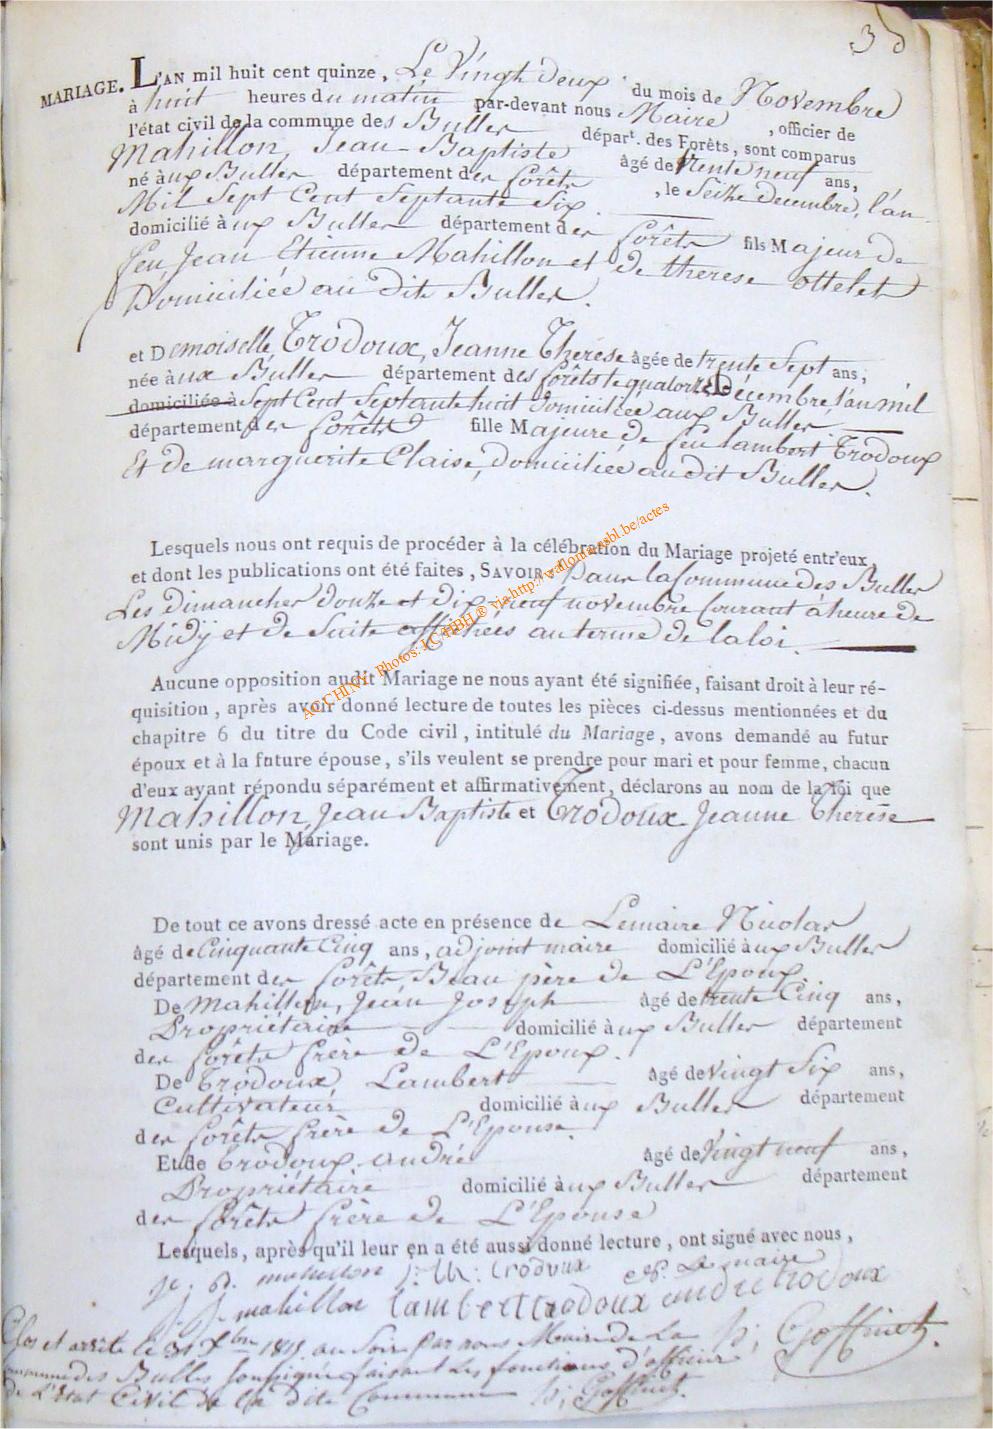 3
MARIAGE. L'AN mil huit cent quinze, Le Vingt deux du mois de Novembre
à huit heures du matin par-devant nous Maire, officier de
l'état civil de la commune des Bulles départ. des Forêts, sont comparus
Mahillon, Jean-Baptiste âgé de trente neuf ans,
né àux Bulles département des forêts, le Seize decembre, l'an
Mil Sept Cent Septante Six
domicilié àux Bulles département des forêts fils Majeur de
feu, Jean Etienne Mahillon et de therese ottelet
Domiciliée au dit Bulles.
et Demoiselle, Trodoux, Jeanne Thérèse âgée de trente Sept ans,
née àux Bulles département des forêts le quatorze Décembre, l'an mil
domiciliée à Sept Cent Septante huit domiciliée aux Bulles
département des forêts fille Majeure de feu lambert Trodoux
Et de marguerite Claise, domiciliée audit Bulles.
Lesquels nous ont requis de procéder à la célébration du Mariage projeté entr'eux
et dont les publications ont été faites, SAVOIR: Dans la Commune des Bulles
Les dimanches douze et dix neuf novembre Courant à heure de
Midÿ et de Suite affichées au terme de la loi.
ACCHINY Photos: J.C. HBH.® via http://wallonia-asbl.be/actes
Aucune opposition audit Mariage ne nous ayant été signifiée, faisant droit à leur ré-
quisition, après avoir donné lecture de toutes les pièces ci-dessus mentionnées et du
chapitre 6 du titre du Code civil, intitulé du Mariage, avons demandé au futur
époux et à la future épouse, s'ils veulent se prendre pour mari et pour femme, chacun
d'eux ayant répondu séparément et affirmativement, déclarons au nom de la loi que
Mahillon, Jean Baptiste et Trodoux Jeanne Therèse
sont unis par le Mariage.
De tout ce avons dressé acte en présence de Lemaire Nicolas
âgé de Cinquante Cinq ans, adjoint maire domicilié àux Bulles
département des forêts, Beau père de L'Epoux.
De Mahillon, Jean Joseph âgé de trente Cinq ans,
Propriétaire domicilié àux Bulles département
des forêts frère de L'Epoux.
De Trodoux, Lambert âgé de vingt Six ans,
Cultivateur domicilié àux Bulles département
des forêts frère de L'Epouse.
Et de Trodoux, andré âgé de Vingt neuf ans,
Propriétaire domicilié àux Bulles département
des forêts frère de L'Epouse
Lesquels, après qu'il leur en a été aussi donné lecture, ont signé avec nous,
je. b. mahillon j: th: trodoux N. Lemaire
j. j. mahillon lambert trodoux andré trodoux
Clos et arrêté le 31 Xbre 1815 au Soir Par nous Maire de La h; Goffinet.
Commune des Bulles Soussigné faisant Les fonctions d'officier
de L'Etat Civil de la dite Commune h; Goffinet.